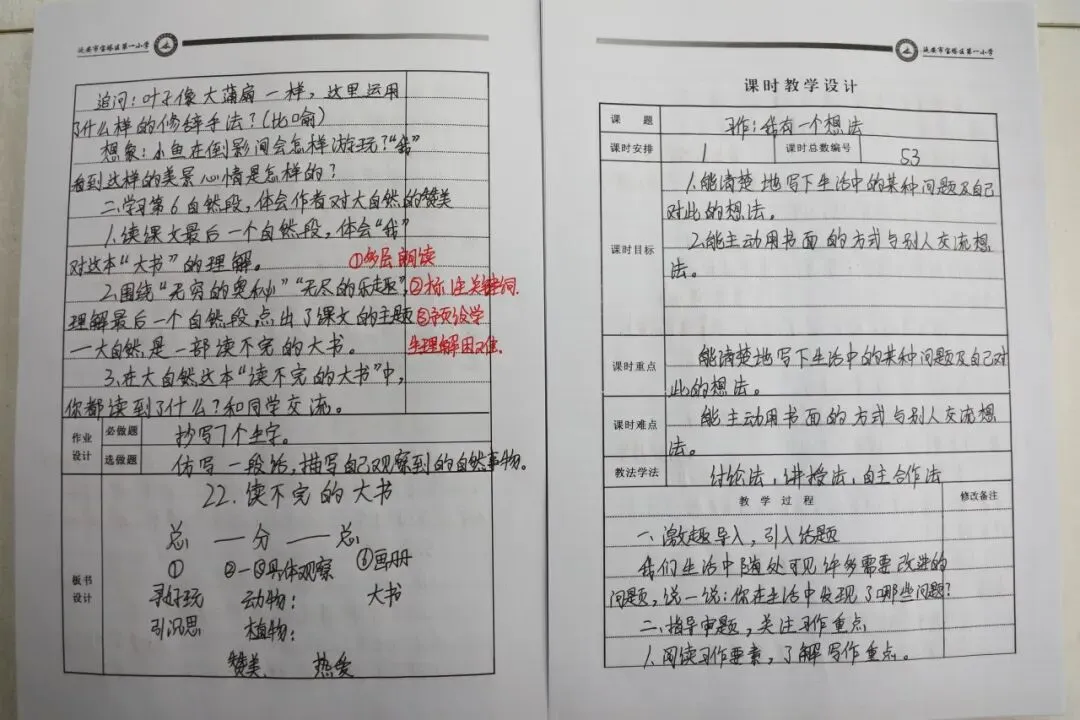 延安市宝塔区第一小学
追问:叶子像大蒲扇一样,这里运用
了什么样的修辞手法?(比喻)
想象:小鱼在倒影间会怎样游玩?“我”
看到这样的美景心情是怎样的?
二、学习第6自然段,体会作者对大自然的赞美
1.读课文最后一个自然段,体会“我”
对这本“大书”的理解。
①多层朗读
2.围绕“无穷的奥秘”“无尽的乐趣”,
②标注关键词.
理解最后一个自然段,点出了课文的主题
③预设学
一大自然,是一部读不完的大书。
生理解困难.
3.在大自然这本“读不完的大书”中,
你都读到了什么?和同学交流。
作业设计
必做题
抄写7个生字。
选做题
仿写一段话,描写自己观察到的自然事物。
板书设计
22.读不完的大书
总 — 分 — 总
① ②—⑤具体观察 ⑥画册
寻好玩 动物: 大书
引沉思 植物:
赞美 热爱
延安市宝塔区第一小学
课时教学设计
课题
习作:我有一个想法
课时安排
1
课时总数编号
53
课时目标
1.能清楚地写下生活中的某种问题及自己
对此的想法。
2.能主动用书面的方式与别人交流想
法。
课时重点
能清楚地写下生活中的某种问题及自己对
此的想法。
课时难点
能主动用书面的方式与别人交流想
法。
教法学法
讨论法,讲授法,自主合作法
教学过程
修改备注
一、激趣导入,引入话题
我们生活中随处可见许多需要改进的
问题,说一说:你在生活中发现了哪些问题?
二、指导审题,关注习作重点
1.阅读习作要素,了解写作重点。